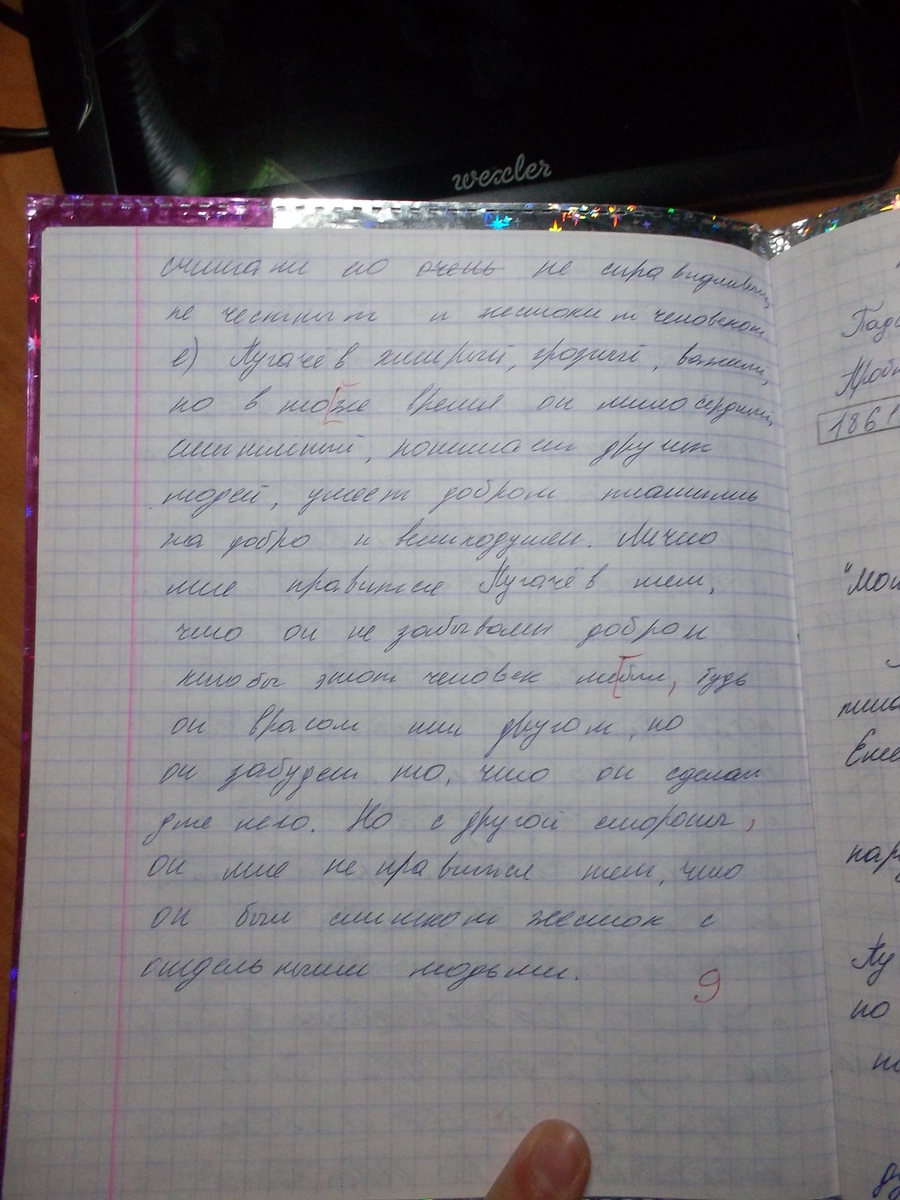 wexler
считали его очень не справидливым,
не честным и жестоким человеком.
е) Пугачёв хитрый, грозный, важный,
но в тоже время он милосердный,
смышлный, понимает других
людей, умеет добром платить
на добро и великодушен. Лично
мне нравится Пугачёв тем,
что он не забывает добрым
кто бы этот человек небыл, будь
он врагом или другом, но
он забудет то, что он сделал
для него. Но с другой стороны,
он мне не нравится тем, что
он был слишком жесток с
отдельными людьми.
9
1861
"Мои
Еме
нар
Пу
но